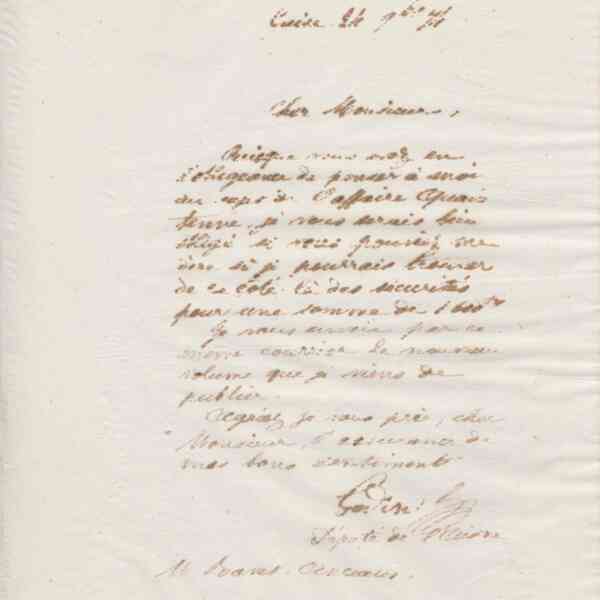 Guise 24 9bre
Cher Monsieur,
Puisque vous avez eu
l'obligeance de penser à moi
au sujet de l'affaire
je vous serais bien
obligé si vous pouviez me
dire si je pourrais trouver
de ce côté là des sécurités
pour une somme de
Je vous envoie par ce
même courrier le nouveau
volume que je viens de
publier.
Agréez je vous prie, cher
Monsieur, l'assurance de
mes bons sentiments
Godin
Député de l'Aisne
M